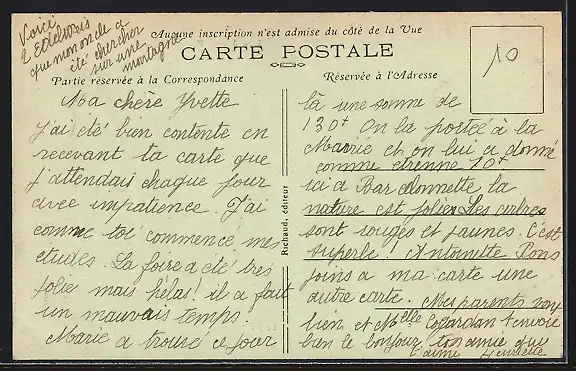 Voici
2 Edelweis
que mon oncle a
été chercher
sur une
montagne
Aucune inscription n'est admise du côté de la Vue
CARTE POSTALE
Partie réservée à la Correspondance
Réservée à l'Adresse
10
Ma chère Yvette
J'ai été bien contente en
recevant ta carte que
j'attendais chaque jour
avec impatience. J'ai
comme toi commencé mes
études. La foire a été très
jolie mais hélas! il a fait
un mauvais temps.
Marie a trouvé ce jour
Richaud, éditeur
là une somme de
130f On la portée à la
Mairie et on lui a donné
comme étrenne 10f
ici a Barcelonnette la
nature est jolie. Les arbres
sont rouges et jaunes. C'est
superbe! Antoinette Pons
joins a ma carte une
autre carte. Mes parents vont
bien et Melle t'envoie
bien le bonjour, ton amie qui
t'aime Henriette